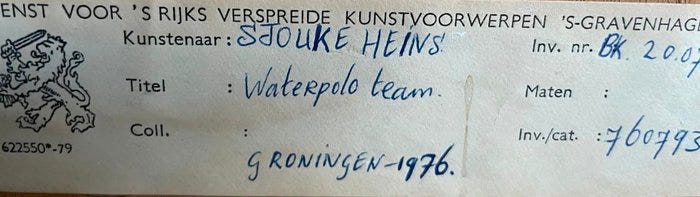 ENST VOOR 'S RIJKS VERSPREIDE KUNSTVOORWERPEN 'S-GRAVENHAG
Kunstenaar: SJOUKE HEINS. Inv. nr. BK. 20.07
Titel : Waterpolo team. Maten :
Coll. : Inv./cat. : 760793
622550*-79
GRONINGEN-1976.